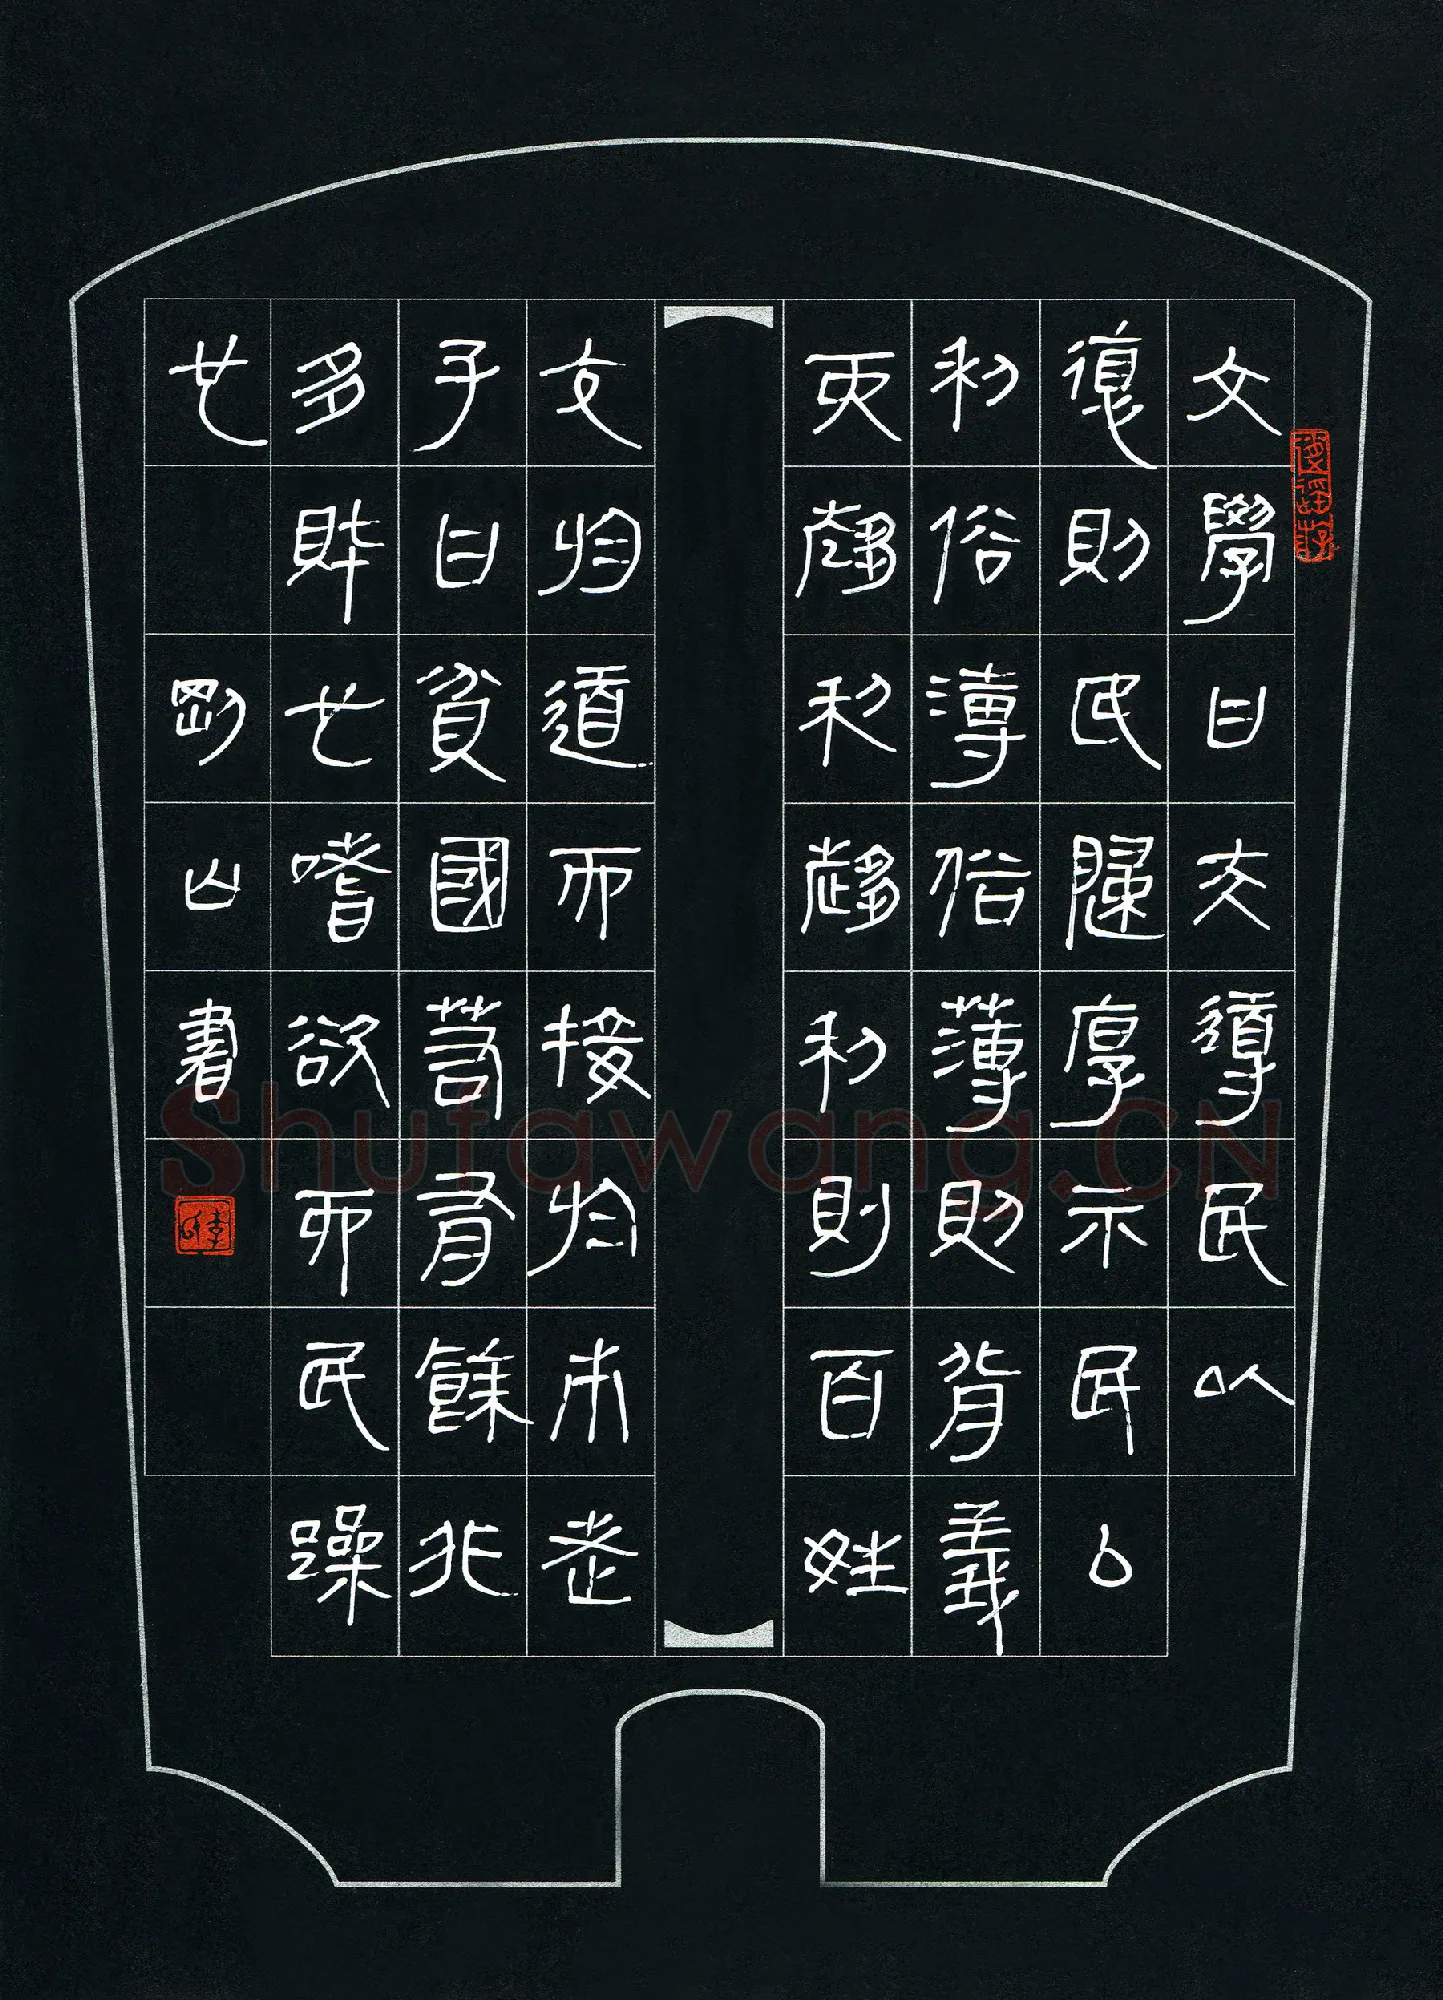 文學曰夫導民以
德則民歸厚示民以
利俗薄俗薄則背義
而趨利趨利則百姓
交於道而接於市老
子曰貧國若有餘非
多財也嗜欲而民躁
也 剛山書
Shufawang.CN